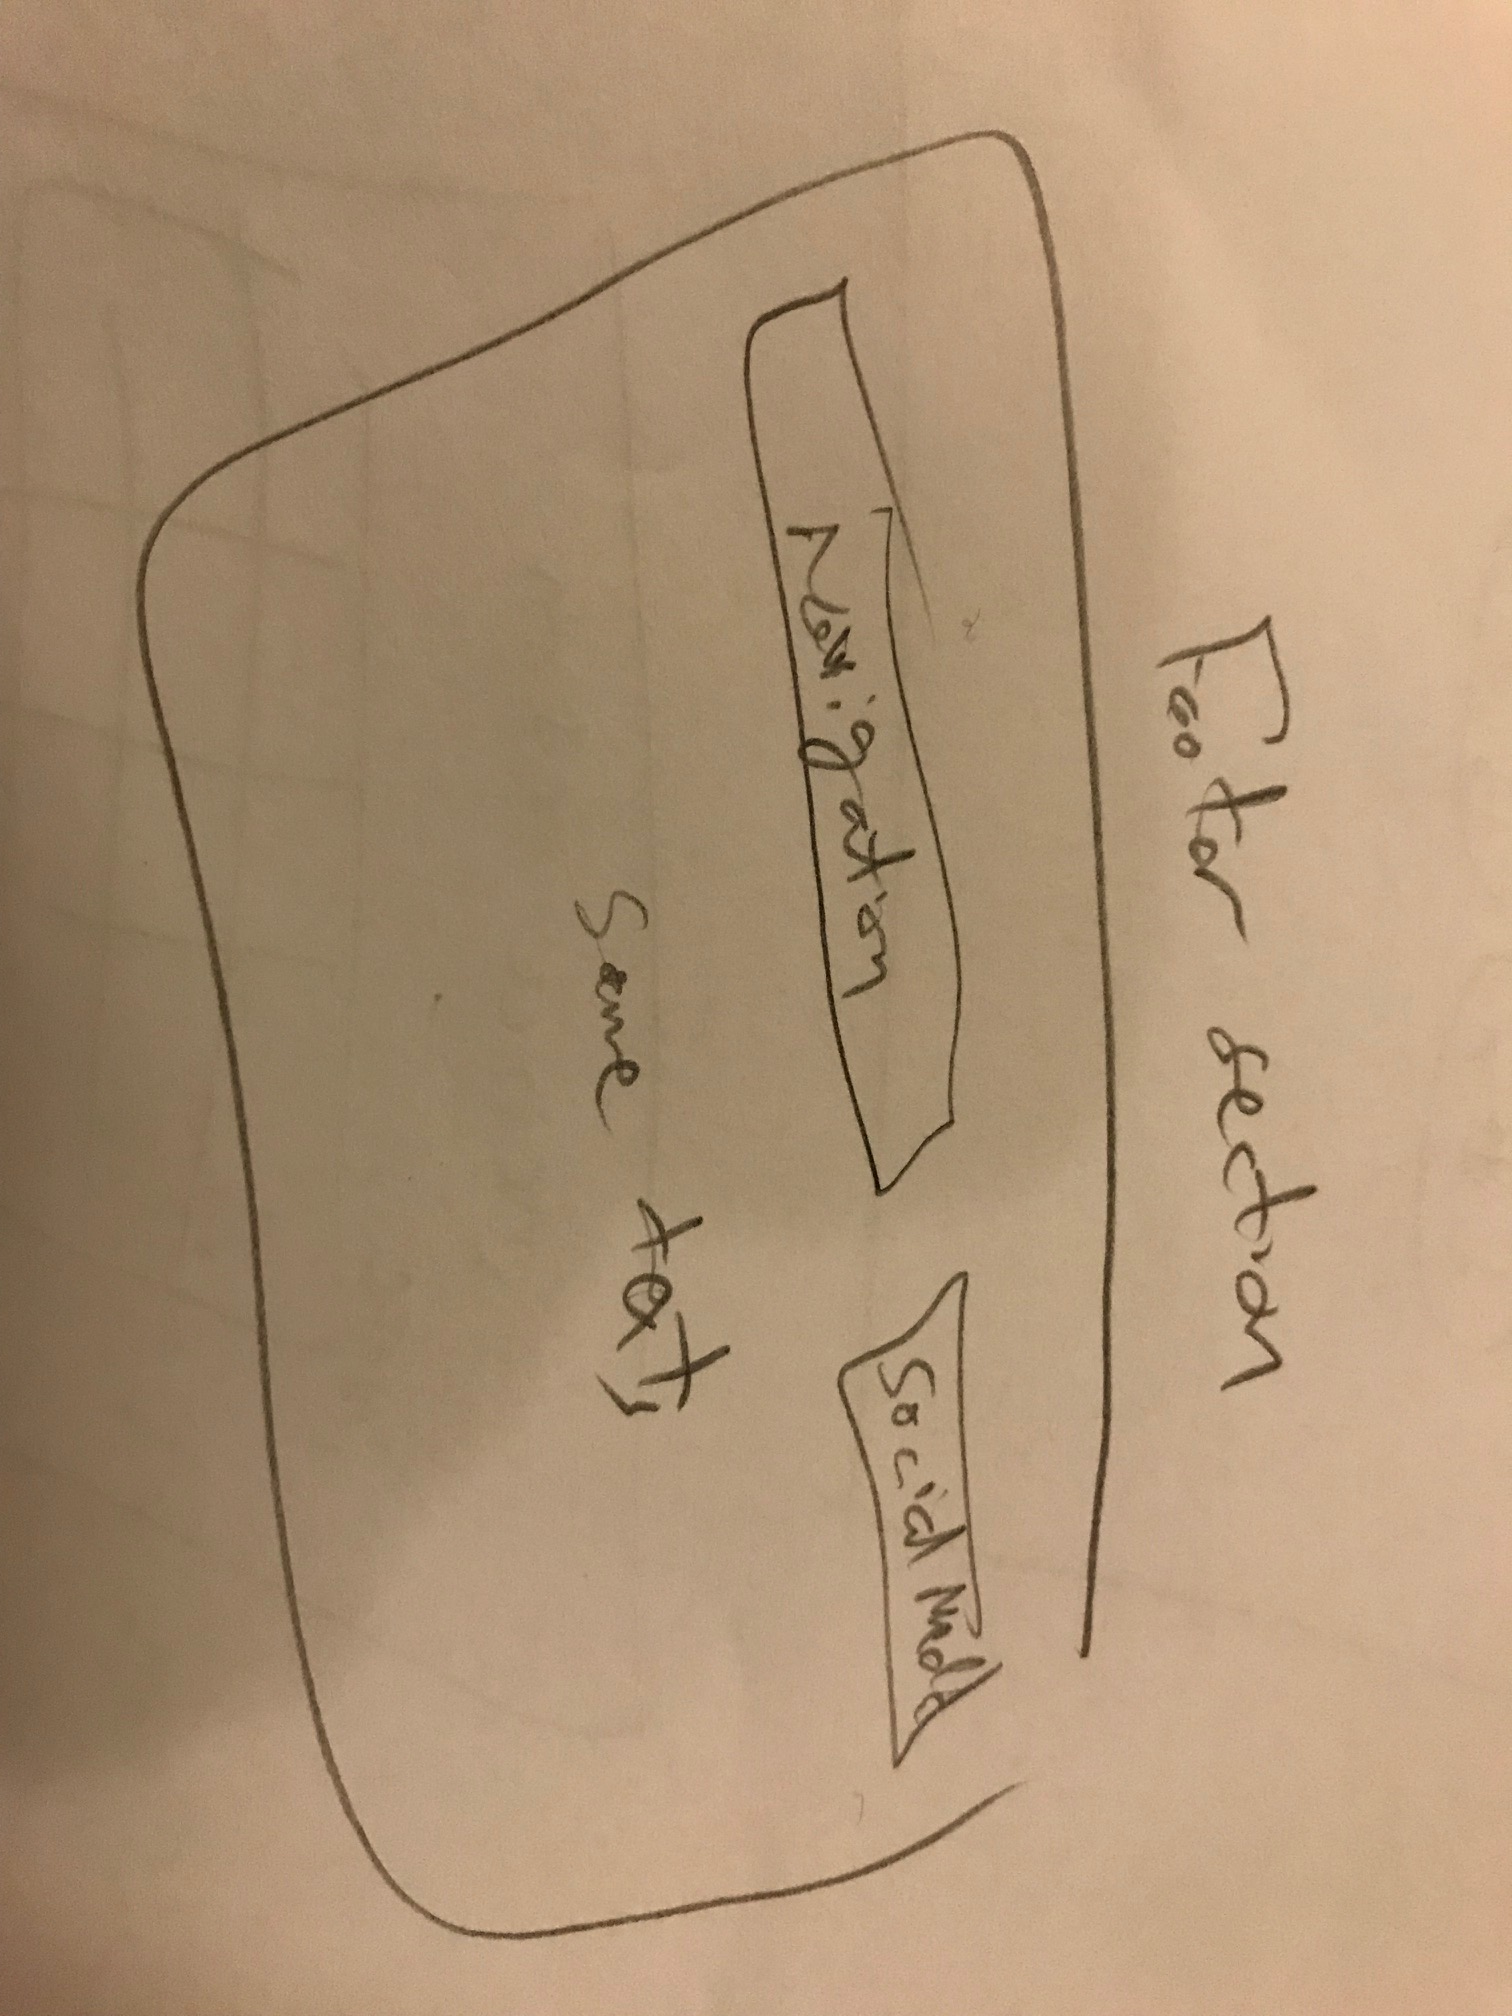 Footer section
Navigation
Social Media
Some text